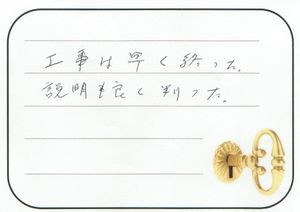 工事は早く終った。
説明も良く判った。